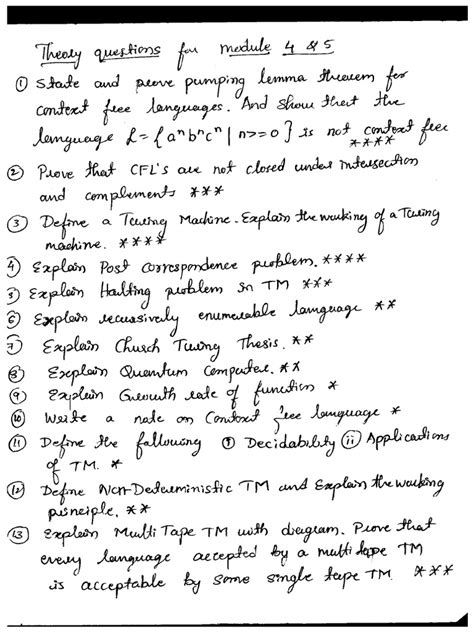 Theory questions for module 4 & 5
① State and prove pumping lemma theorem for
context free languages. And show that the
language L = { aⁿbⁿcⁿ | n>=0 } is not context free
****
② Prove that CFL's are not closed under intersection
and complements ***
③ Define a Turing Machine. Explain the working of a Turing
machine. ****
④ Explain Post correspondence problem. ****
⑤ Explain Halting problem in TM ***
⑥ Explain recursively enumerable language **
⑦ Explain Church Turing Thesis. **
⑧ Explain Quantum Computer. **
⑨ Explain Growth rate of function *
⑩ Write a note on Context free language *
⑪ Define the following ① Decidability ⅱ Applications
of TM. *
⑫ Define Non-Deterministic TM and Explain the working
principle. **
⑬ Explain Multi Tape TM with diagram. Prove that
every language accepted by a multi tape TM
is acceptable by some single tape TM. ***